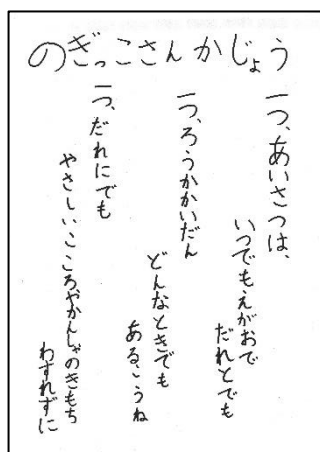 のぎっこさんかじょう
一つ、あいさつは、
いつでもえがおで
だれとでも
一つ、ろうかかいだん
どんなときでも
あるこうね
一つ、だれにでも
やさしいこころやかんしゃのきもち
わすれずに